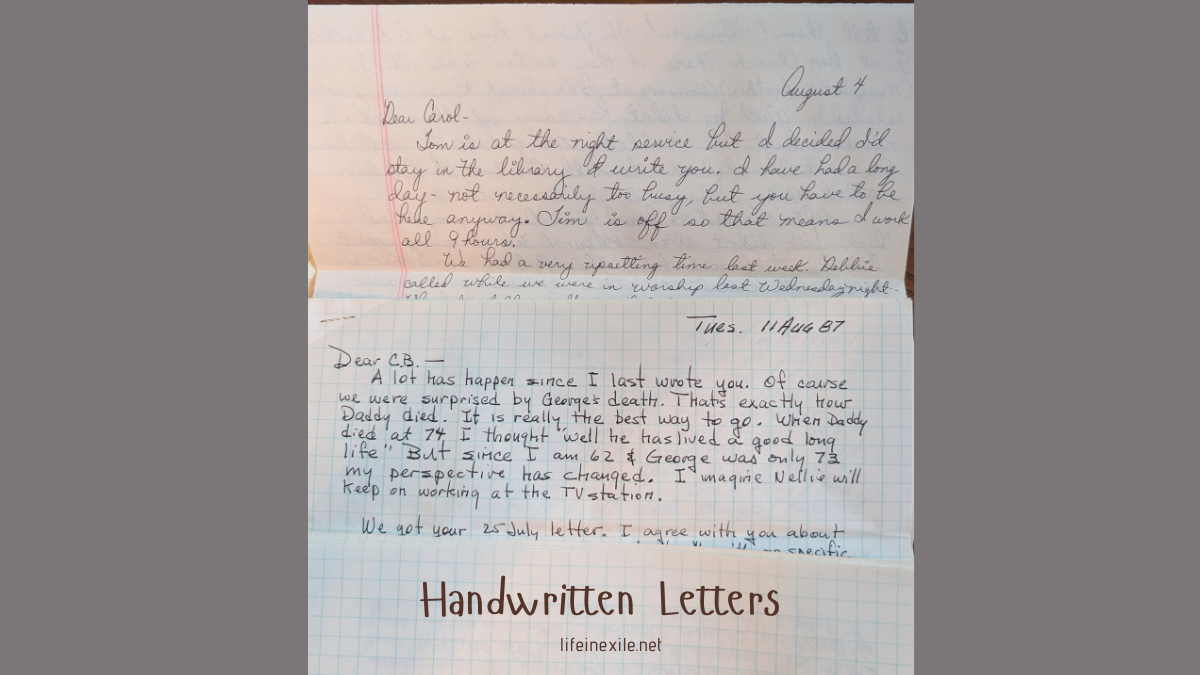 August 4
Dear Carol-
Tom is at the night service but I decided I'd
stay in the library & write you. I have had a long
day- not necessarily too busy, but you have to be
here anyway. Jim is off so that means I work
all 9 hours.
We had a very upsetting time last week. Debbie
called while we were in worship last Wednesday night-
Tues. 11 Aug 87
Dear C.B. —
A lot has happen since I last wrote you. Of course
we were surprised by George's death. That's exactly how
Daddy died. It is really the best way to go. When Daddy
died at 74 I thought "well he has lived a good long
life" But since I am 62 & George was only 73
my perspective has changed. I imagine Nellie will
keep on working at the TV station.
We got your 25 July letter. I agree with you about
specific
Handwritten Letters
lifeinexile.net